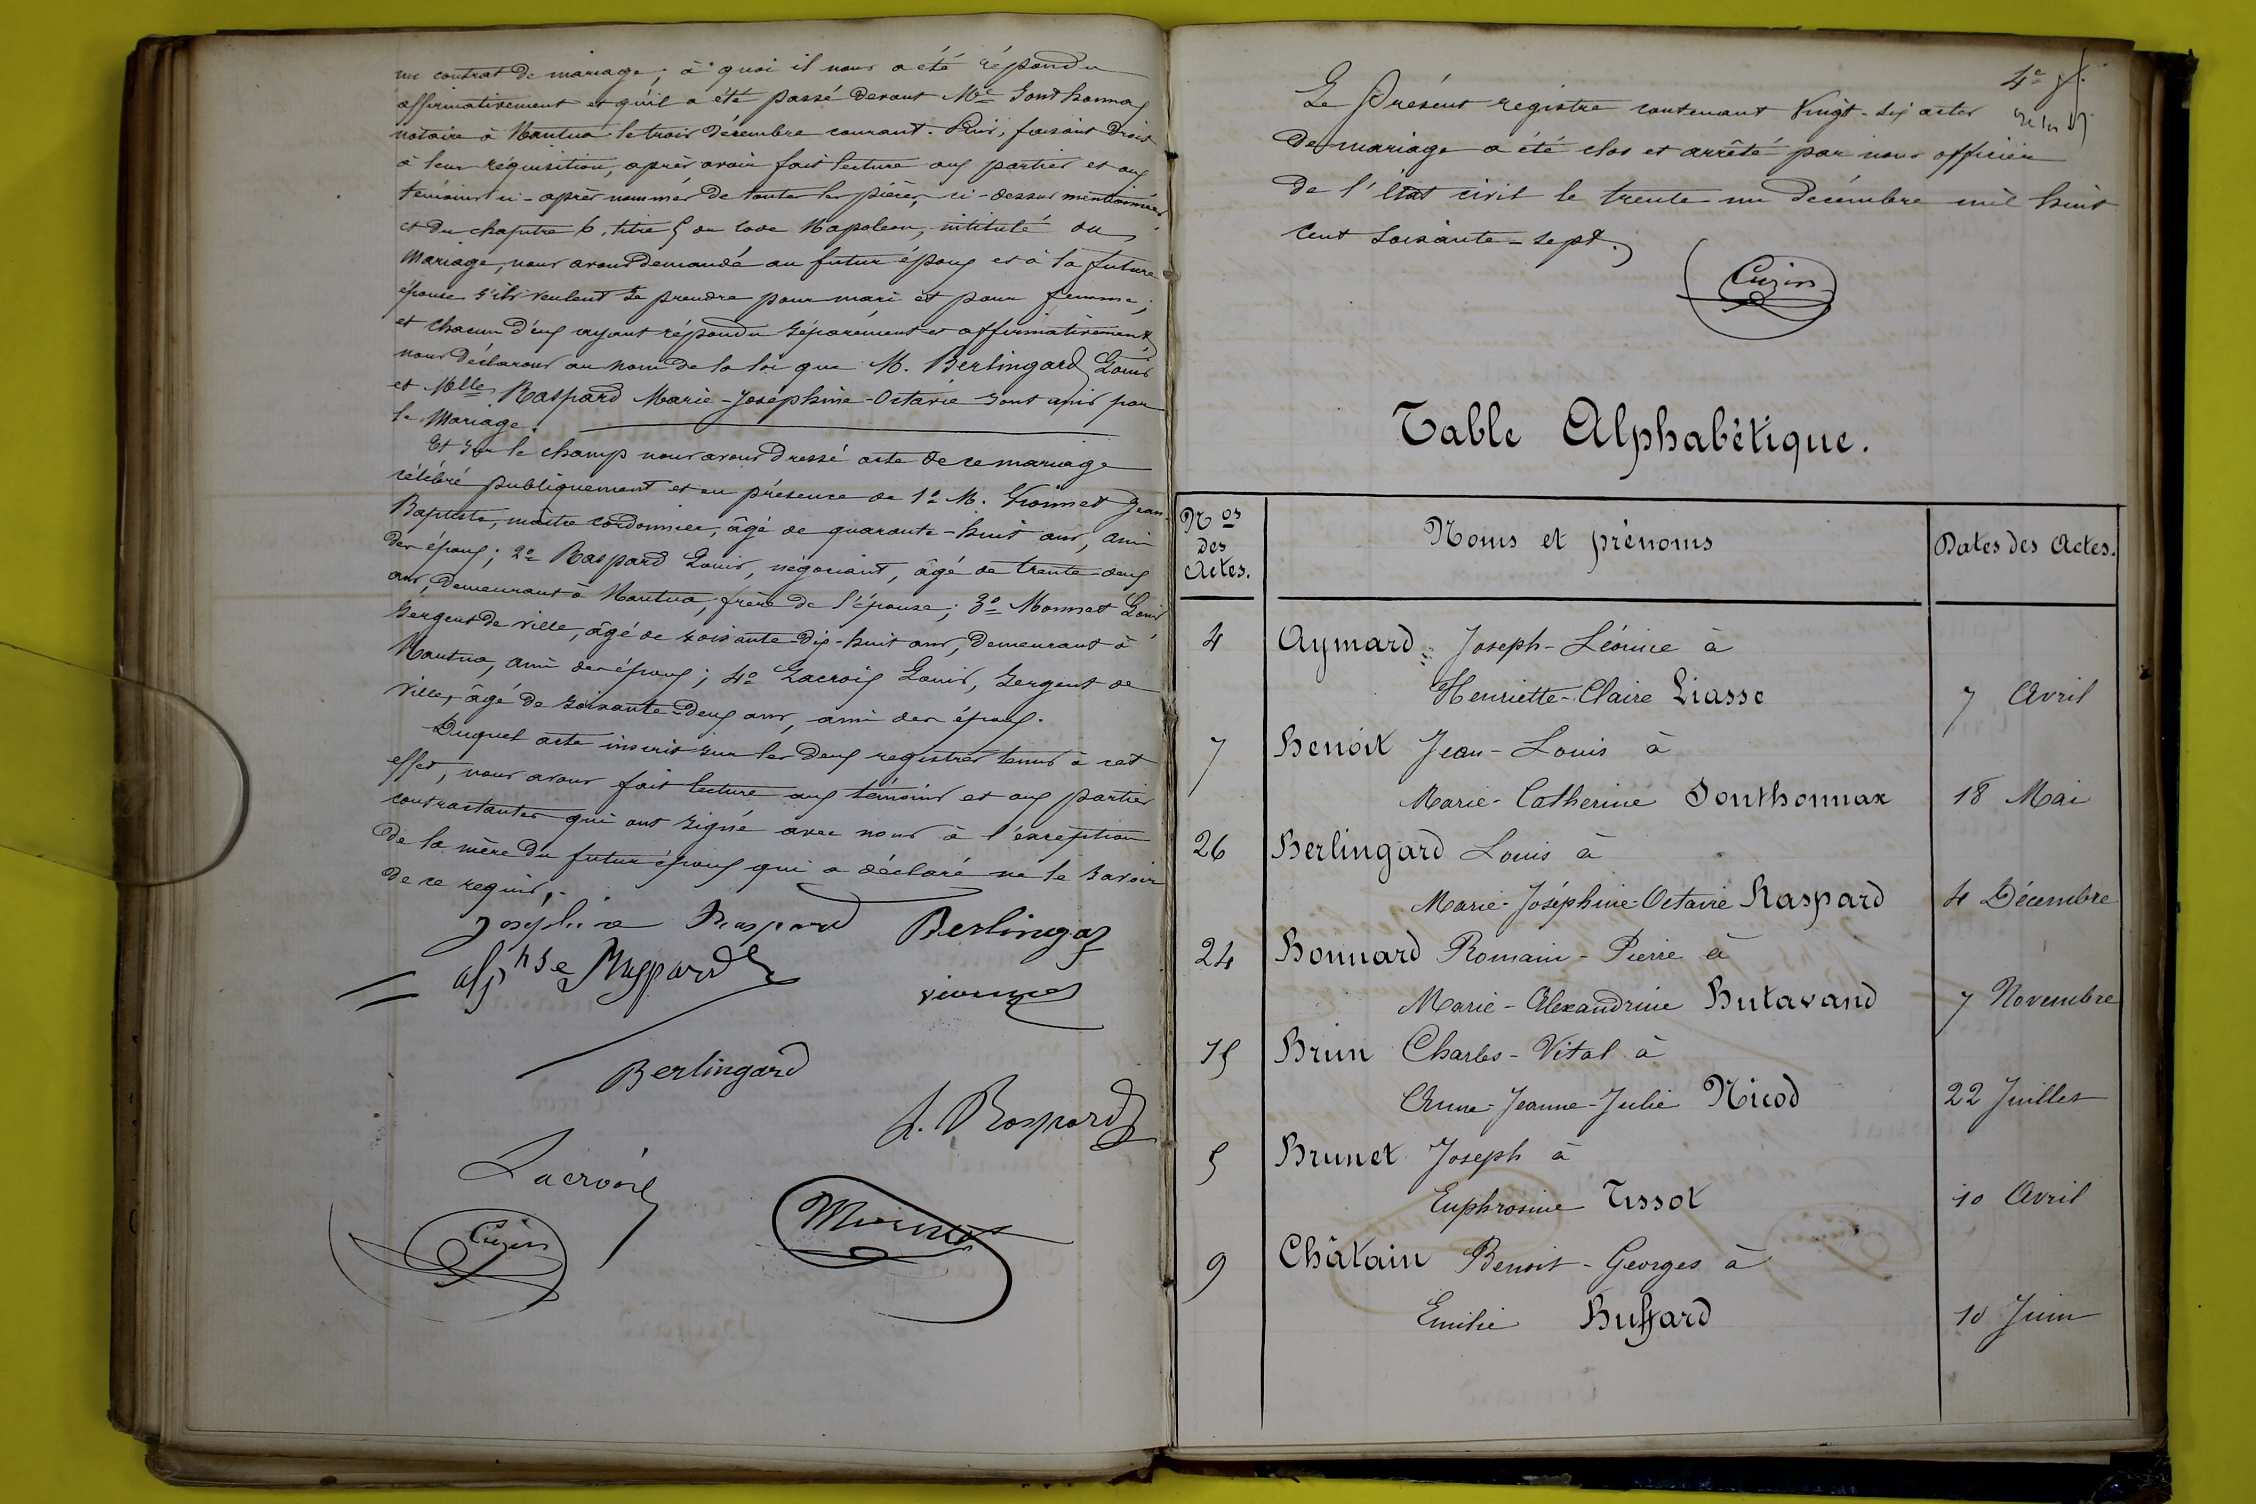 un contrat de mariage; à quoi il nous a été répondu
affirmativement et qu'il a été passé devant Me Gonthonnax
notaire à Nantua le trois décembre courant. Puis, faisant droit
à leur réquisition, après avoir fait lecture aux parties et aux
témoins ci-après nommés de toutes les pièces, ci-dessus mentionnées
et du chapitre 6, titre 5 du Code Napoléon, intitulé du
Mariage, nous avons demandé au futur époux et à la future
épouse s'ils veulent se prendre pour mari et pour femme;
et chacun d'eux ayant répondu séparément et affirmativement
nous déclarons au nom de la loi que M. Berlingard Louis
et Melle Raspard Marie-Joséphine-Octavie sont unis par
le Mariage.
Et sur le champ nous avons dressé acte de ce mariage
célébré publiquement et en présence de 1º M. Vionnet Jean-
Baptiste, maître cordonnier, âgé de quarante-huit ans, ami
des époux; 2º Raspard Louis, négociant, âgé de trente-deux
ans, demeurant à Nantua, frère de l'épouse; 3º Monnet Louis,
Sergent de ville, âgé de soixante-dix-huit ans, demeurant à
Nantua, ami des époux; 4º Lacroix Louis, Sergent de
Ville, âgé de soixante-deux ans, ami des époux.
Duquel acte inscrit sur les deux registres tenus à cet
effet, nous avons fait lecture aux témoins et aux parties
contractantes qui ont signé avec nous à l'exception
de la mère du futur époux qui a déclaré ne le savoir
de ce requis.
Joséphine Raspard Berlingard
alphse Raspard
Berlingard
L. Raspard
Lacroix
Cuzin
Monnet
4e
Le Présent registre contenant Vingt-six actes
de mariage a été clos et arrêté par nous officier
de l'état civil le trente un décembre mil huit
cent soixante-sept.
Cuzin
Table Alphabétique.
Nos des Actes. Noms et prénoms Dates des Actes.
4 Aymard Joseph-Léonice à
Henriette-Claire Liasse 7 Avril
7 Benoit Jean-Louis à
Marie-Catherine Gonthonnax 18 Mai
26 Berlingard Louis à
Marie-Joséphine-Octavie Raspard 4 Décembre
24 Bonnard Romain-Pierre à
Marie-Alexandrine Butavand 7 Novembre
15 Brun Charles-Vital à
Anne-Jeanne-Julie Nicod 22 Juillet
5 Brunet Joseph à
Euphrosine Tissot 10 Avril
9 Châtain Benoit-Georges à
Emilie Buffard 10 Juin